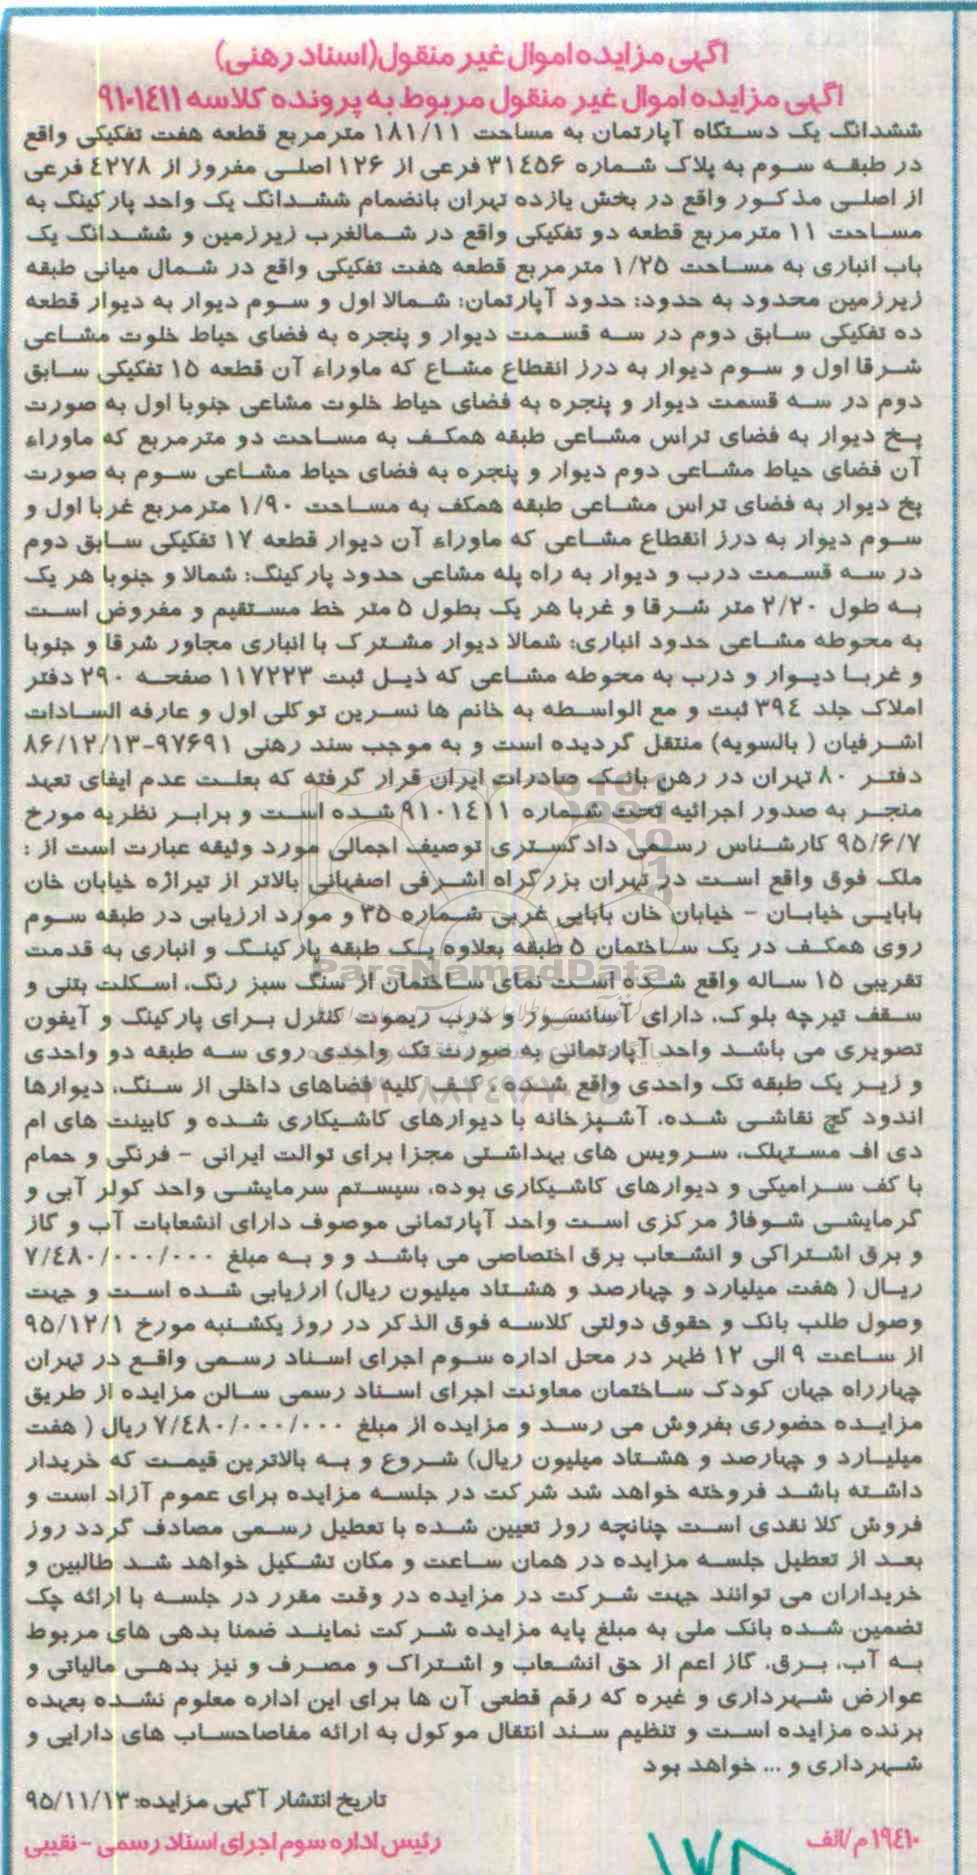 آگهی مزایده اموال غیر منقول(اسناد رهنی)
آگهی مزایده اموال غیر منقول مربوط به پرونده کلاسه ۹۱۰۱۴۱۱
ششدانگ یک دستگاه آپارتمان به مساحت ۱۸۱/۱۱ مترمربع قطعه هفت تفکیکی واقع
در طبقه سوم به پلاک شماره ۳۱۴۵۶ فرعی از ۱۲۶ اصلی مفروز از ۴۲۷۸ فرعی
از اصلی مذکور واقع در بخش یازده تهران بانضمام ششدانگ یک واحد پارکینگ به
مساحت ۱۱ مترمربع قطعه دو تفکیکی واقع در شمالغرب زیرزمین و ششدانگ یک
باب انباری به مساحت ۱/۲۵ مترمربع قطعه هفت تفکیکی واقع در شمال میانی طبقه
زیرزمین محدود به حدود: حدود آپارتمان: شمالا اول و سوم دیوار به دیوار قطعه
ده تفکیکی سابق دوم در سه قسمت دیوار و پنجره به فضای حیاط خلوت مشاعی
شرقا اول و سوم دیوار به درز انقطاع مشاع که ماوراء آن قطعه ۱۵ تفکیکی سابق
دوم در سه قسمت دیوار و پنجره به فضای حیاط خلوت مشاعی جنوبا اول به صورت
پخ دیوار به فضای تراس مشاعی طبقه همکف به مساحت دو مترمربع که ماوراء
آن فضای حیاط مشاعی دوم دیوار و پنجره به فضای حیاط مشاعی سوم به صورت
پخ دیوار به فضای تراس مشاعی طبقه همکف به مساحت ۱/۹۰ مترمربع غربا اول و
سوم دیوار به درز انقطاع مشاعی که ماوراء آن دیوار قطعه ۱۷ تفکیکی سابق دوم
در سه قسمت درب و دیوار به راه پله مشاعی حدود پارکینگ: شمالا و جنوبا هر یک
به طول ۲/۲۰ متر شرقا و غربا هر یک بطول ۵ متر خط مستقیم و مفروض است
به محوطه مشاعی حدود انباری: شمالا دیوار مشترک با انباری مجاور شرقا و جنوبا
و غربا دیوار و درب به محوطه مشاعی که ذیل ثبت ۱۱۷۲۲۳ صفحه ۲۹۰ دفتر
املاک جلد ۳۹۴ ثبت و مع الواسطه به خانم ها نسرین توکلی اول و عارفه السادات
اشرفیان ( بالسویه) منتقل گردیده است و به موجب سند رهنی ۹۷۶۹۱-۸۶/۱۲/۱۳
دفتر ۸۰ تهران در رهن بانک صادرات ایران قرار گرفته که بعلت عدم ایفای تعهد
منجر به صدور اجرائیه تحت شماره ۹۱۰۱۴۱۱ شده است و برابر نظریه مورخ
۹۵/۶/۷ کارشناس رسمی دادگستری توصیف اجمالی مورد وثیقه عبارت است از :
ملک فوق واقع است در تهران بزرگراه اشرفی اصفهانی بالاتر از تیراژه خیابان خان
بابایی خیابان - خیابان خان بابایی غربی شماره ۳۵ و مورد ارزیابی در طبقه سوم
روی همکف در یک ساختمان ۵ طبقه بعلاوه یک طبقه پارکینگ و انباری به قدمت
تقریبی ۱۵ ساله واقع شده است نمای ساختمان از سنگ سبز رنگ، اسکلت بتنی و
سقف تیرچه بلوک، دارای آسانسور و درب ریموت کنترل برای پارکینگ و آیفون
تصویری می باشد واحد آپارتمانی به صورت تک واحدی روی سه طبقه دو واحدی
و زیر یک طبقه تک واحدی واقع شده ، کف کلیه فضاهای داخلی از سنگ، دیوارها
اندود گچ نقاشی شده، آشپزخانه با دیوارهای کاشیکاری شده و کابینت های ام
دی اف مستهلک، سرویس های بهداشتی مجزا برای توالت ایرانی - فرنگی و حمام
با کف سرامیکی و دیوارهای کاشیکاری بوده، سیستم سرمایشی واحد کولر آبی و
گرمایشی شوفاژ مرکزی است واحد آپارتمانی موصوف دارای انشعابات آب و گاز
و برق اشتراکی و انشعاب برق اختصاصی می باشد و و به مبلغ ۷/۴۸۰/۰۰۰/۰۰۰
ریال ( هفت میلیارد و چهارصد و هشتاد میلیون ریال) ارزیابی شده است و جهت
وصول طلب بانک و حقوق دولتی کلاسه فوق الذکر در روز یکشنبه مورخ ۹۵/۱۲/۱
از ساعت ۹ الی ۱۲ ظهر در محل اداره سوم اجرای اسناد رسمی واقع در تهران
چهارراه جهان کودک ساختمان معاونت اجرای اسناد رسمی سالن مزایده از طریق
مزایده حضوری بفروش می رسد و مزایده از مبلغ ۷/۴۸۰/۰۰۰/۰۰۰ ریال ( هفت
میلیارد و چهارصد و هشتاد میلیون ریال) شروع و به بالاترین قیمت که خریدار
داشته باشد فروخته خواهد شد شرکت در جلسه مزایده برای عموم آزاد است و
فروش کلا نقدی است چنانچه روز تعیین شده با تعطیل رسمی مصادف گردد روز
بعد از تعطیل جلسه مزایده در همان ساعت و مکان تشکیل خواهد شد طالبین و
خریداران می توانند جهت شرکت در مزایده در وقت مقرر در جلسه با ارائه چک
تضمین شده بانک ملی به مبلغ پایه مزایده شرکت نمایند ضمنا بدهی های مربوط
به آب، برق، گاز اعم از حق انشعاب و اشتراک و مصرف و نیز بدهی مالیاتی و
عوارض شهرداری و غیره که رقم قطعی آن ها برای این اداره معلوم نشده بعهده
برنده مزایده است و تنظیم سند انتقال موکول به ارائه مفاصاحساب های دارایی و
شهرداری و ... خواهد بود
تاریخ انتشار آگهی مزایده: ۹۵/۱۱/۱۳
۱۹۴۱۰/م الف رئیس اداره سوم اجرای اسناد رسمی - نقیبی
ParsNamadData